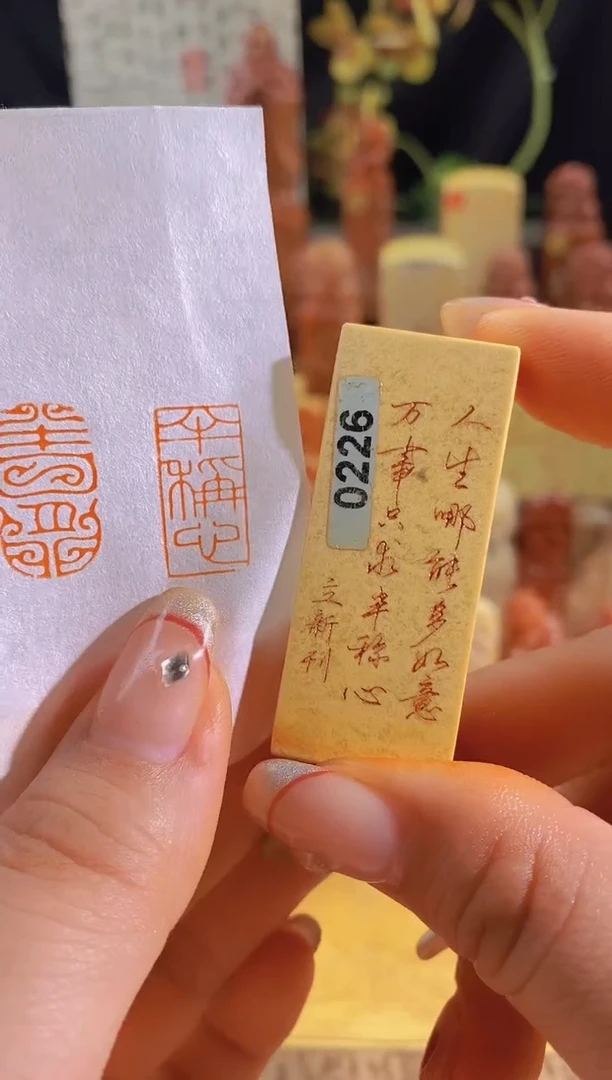 半稱心
人生哪能多如意
万事只求半称心
立新刊
0226